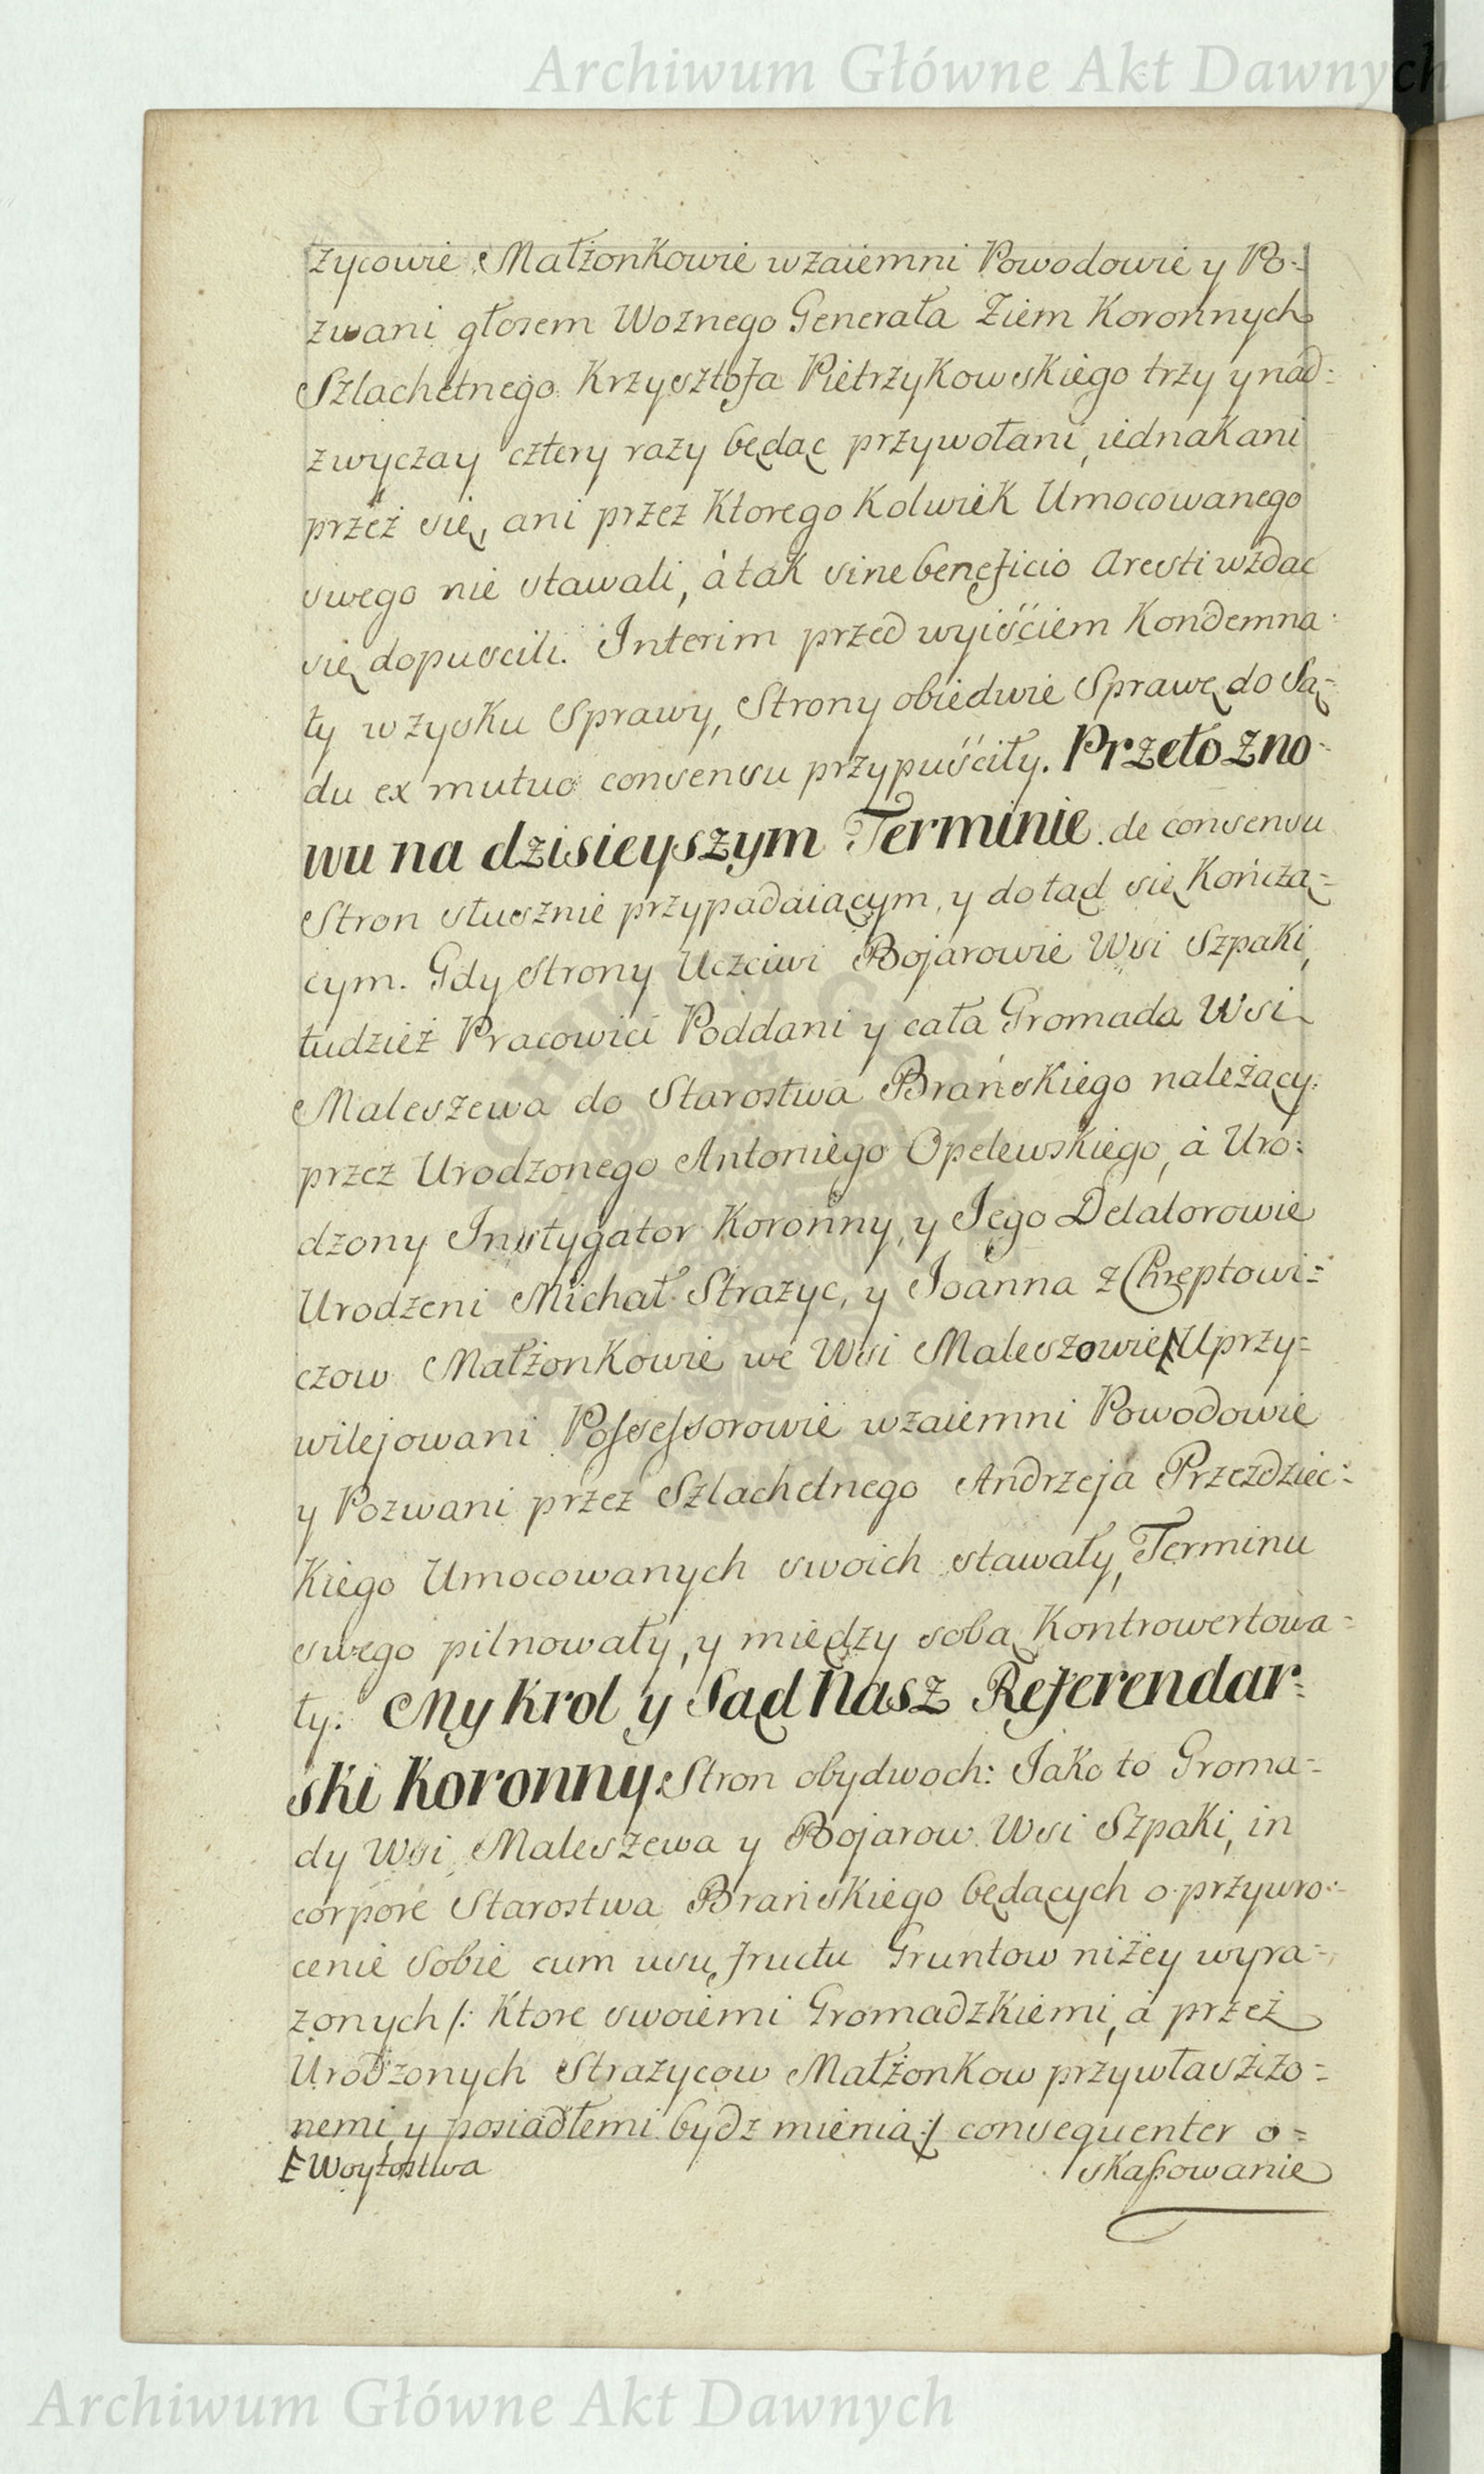 Archiwum Główne Akt Dawnych
życowie Małżonkowie wzaiemni Powodowie y Po-
zwani głosem Woznego Generała Ziem Koronnych
Szlachetnego Krzysztofa Pietrzykowskiego trzy y nad-
zwyczay cztery razy będąc przywołani, iednak ani
przez się, ani przez ktorego kolwiek Umocowanego
swego nie stawali, á tak sine beneficio Aresti wzdac
się dopuscili. Interim przed wyiściem Kondemna-
ty w zysku Sprawy, Strony obiedwie Sprawę do Są-
du ex mutuo consensu przypuściły. Przeto zno-
wu na dzisieyszym Terminie de consensu
Stron słusznie przypadaiącym, y dotąd się kończą-
cym. Gdy Strony Uczciwi Bojarowie Wsi Szpaki,
tudzież Pracowici Poddani y cała Gromada Wsi
Maleszewa do Starostwa Brańskiego należący
przez Urodzonego Antoniego Opelewskiego, á Uro-
dzony Instygator Koronny, y Jego Delatorowie
Urodzeni Michał Strażyc, y Joanna z Chreptowi-
czow Małżonkowie we Wsi Maleszowie Uprzy-
wilejowani Possessorowie wzaiemni Powodowie
y Pozwani przez Szlachetnego Andrzeja Przezdziec-
kiego Umocowanych swoich stawały, Terminu
swego pilnowały, y między sobą Kontrowertowa-
ły. My Krol y Sąd Nasz Referendar-
ski Koronny Stron obydwoch: Jako to Groma-
dy Wsi Maleszewa y Bojarow Wsi Szpaki, in
corpore Starostwa Brańskiego będących o przywro-
cenie sobie cum usu fructu Gruntow niżey wyra-
żonych /: ktore swoiemi Gromadzkiemi, á przez
Urodzonych Strażycow Małżonkow przywłaszczo-
nemi y posiadłemi bydz mienią :/ consequenter o-
Woytostwa skassowanie
Archiwum Główne Akt Dawnych